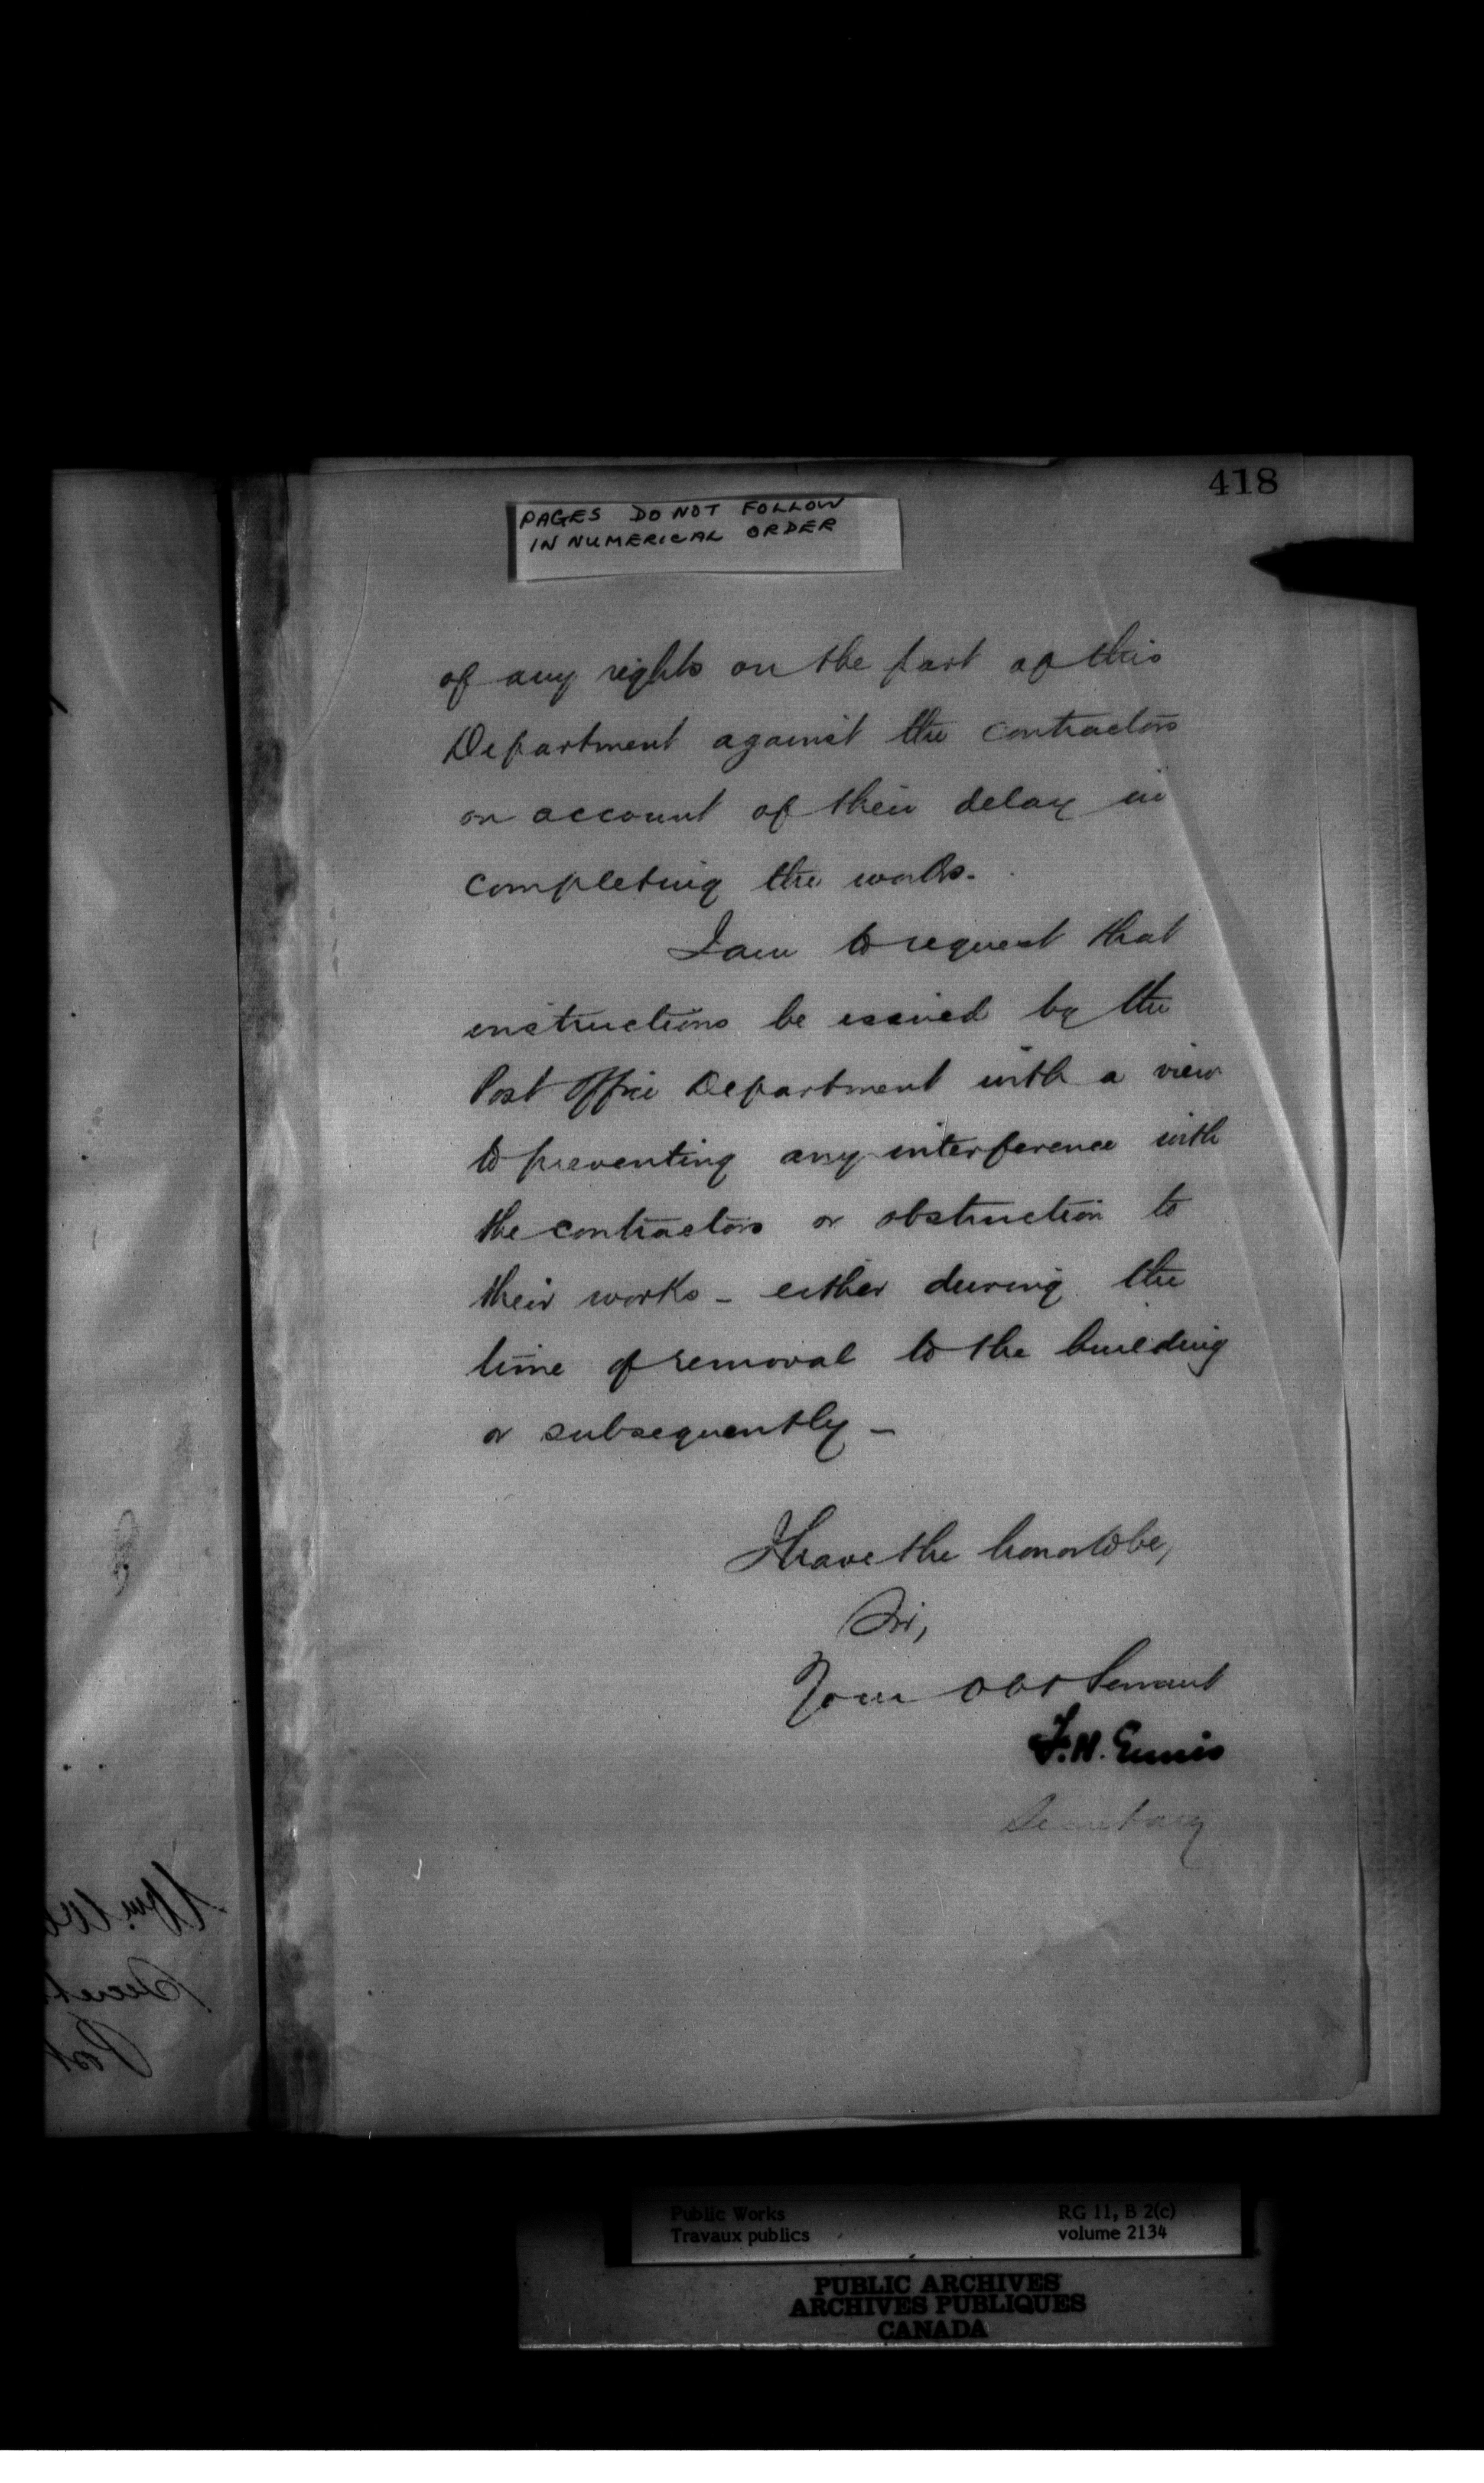 418
PAGES DO NOT FOLLOW
IN NUMERICAL ORDER
of any rights on the part of this
Department against the contractors
on account of their delay in
completing the works.
I am to request that
instructions be issued by the
Post Office Department with a view
to preventing any interference with
the contractors or obstruction to
their works - either during the
time of removal to the building
or subsequently -
I have the honor to be,
Sir,
Your Obt Servant
F. H. Ennis
Secretary
Public Works
Travaux publics
RG 11, B 2(c)
volume 2134
PUBLIC ARCHIVES
ARCHIVES PUBLIQUES
CANADA